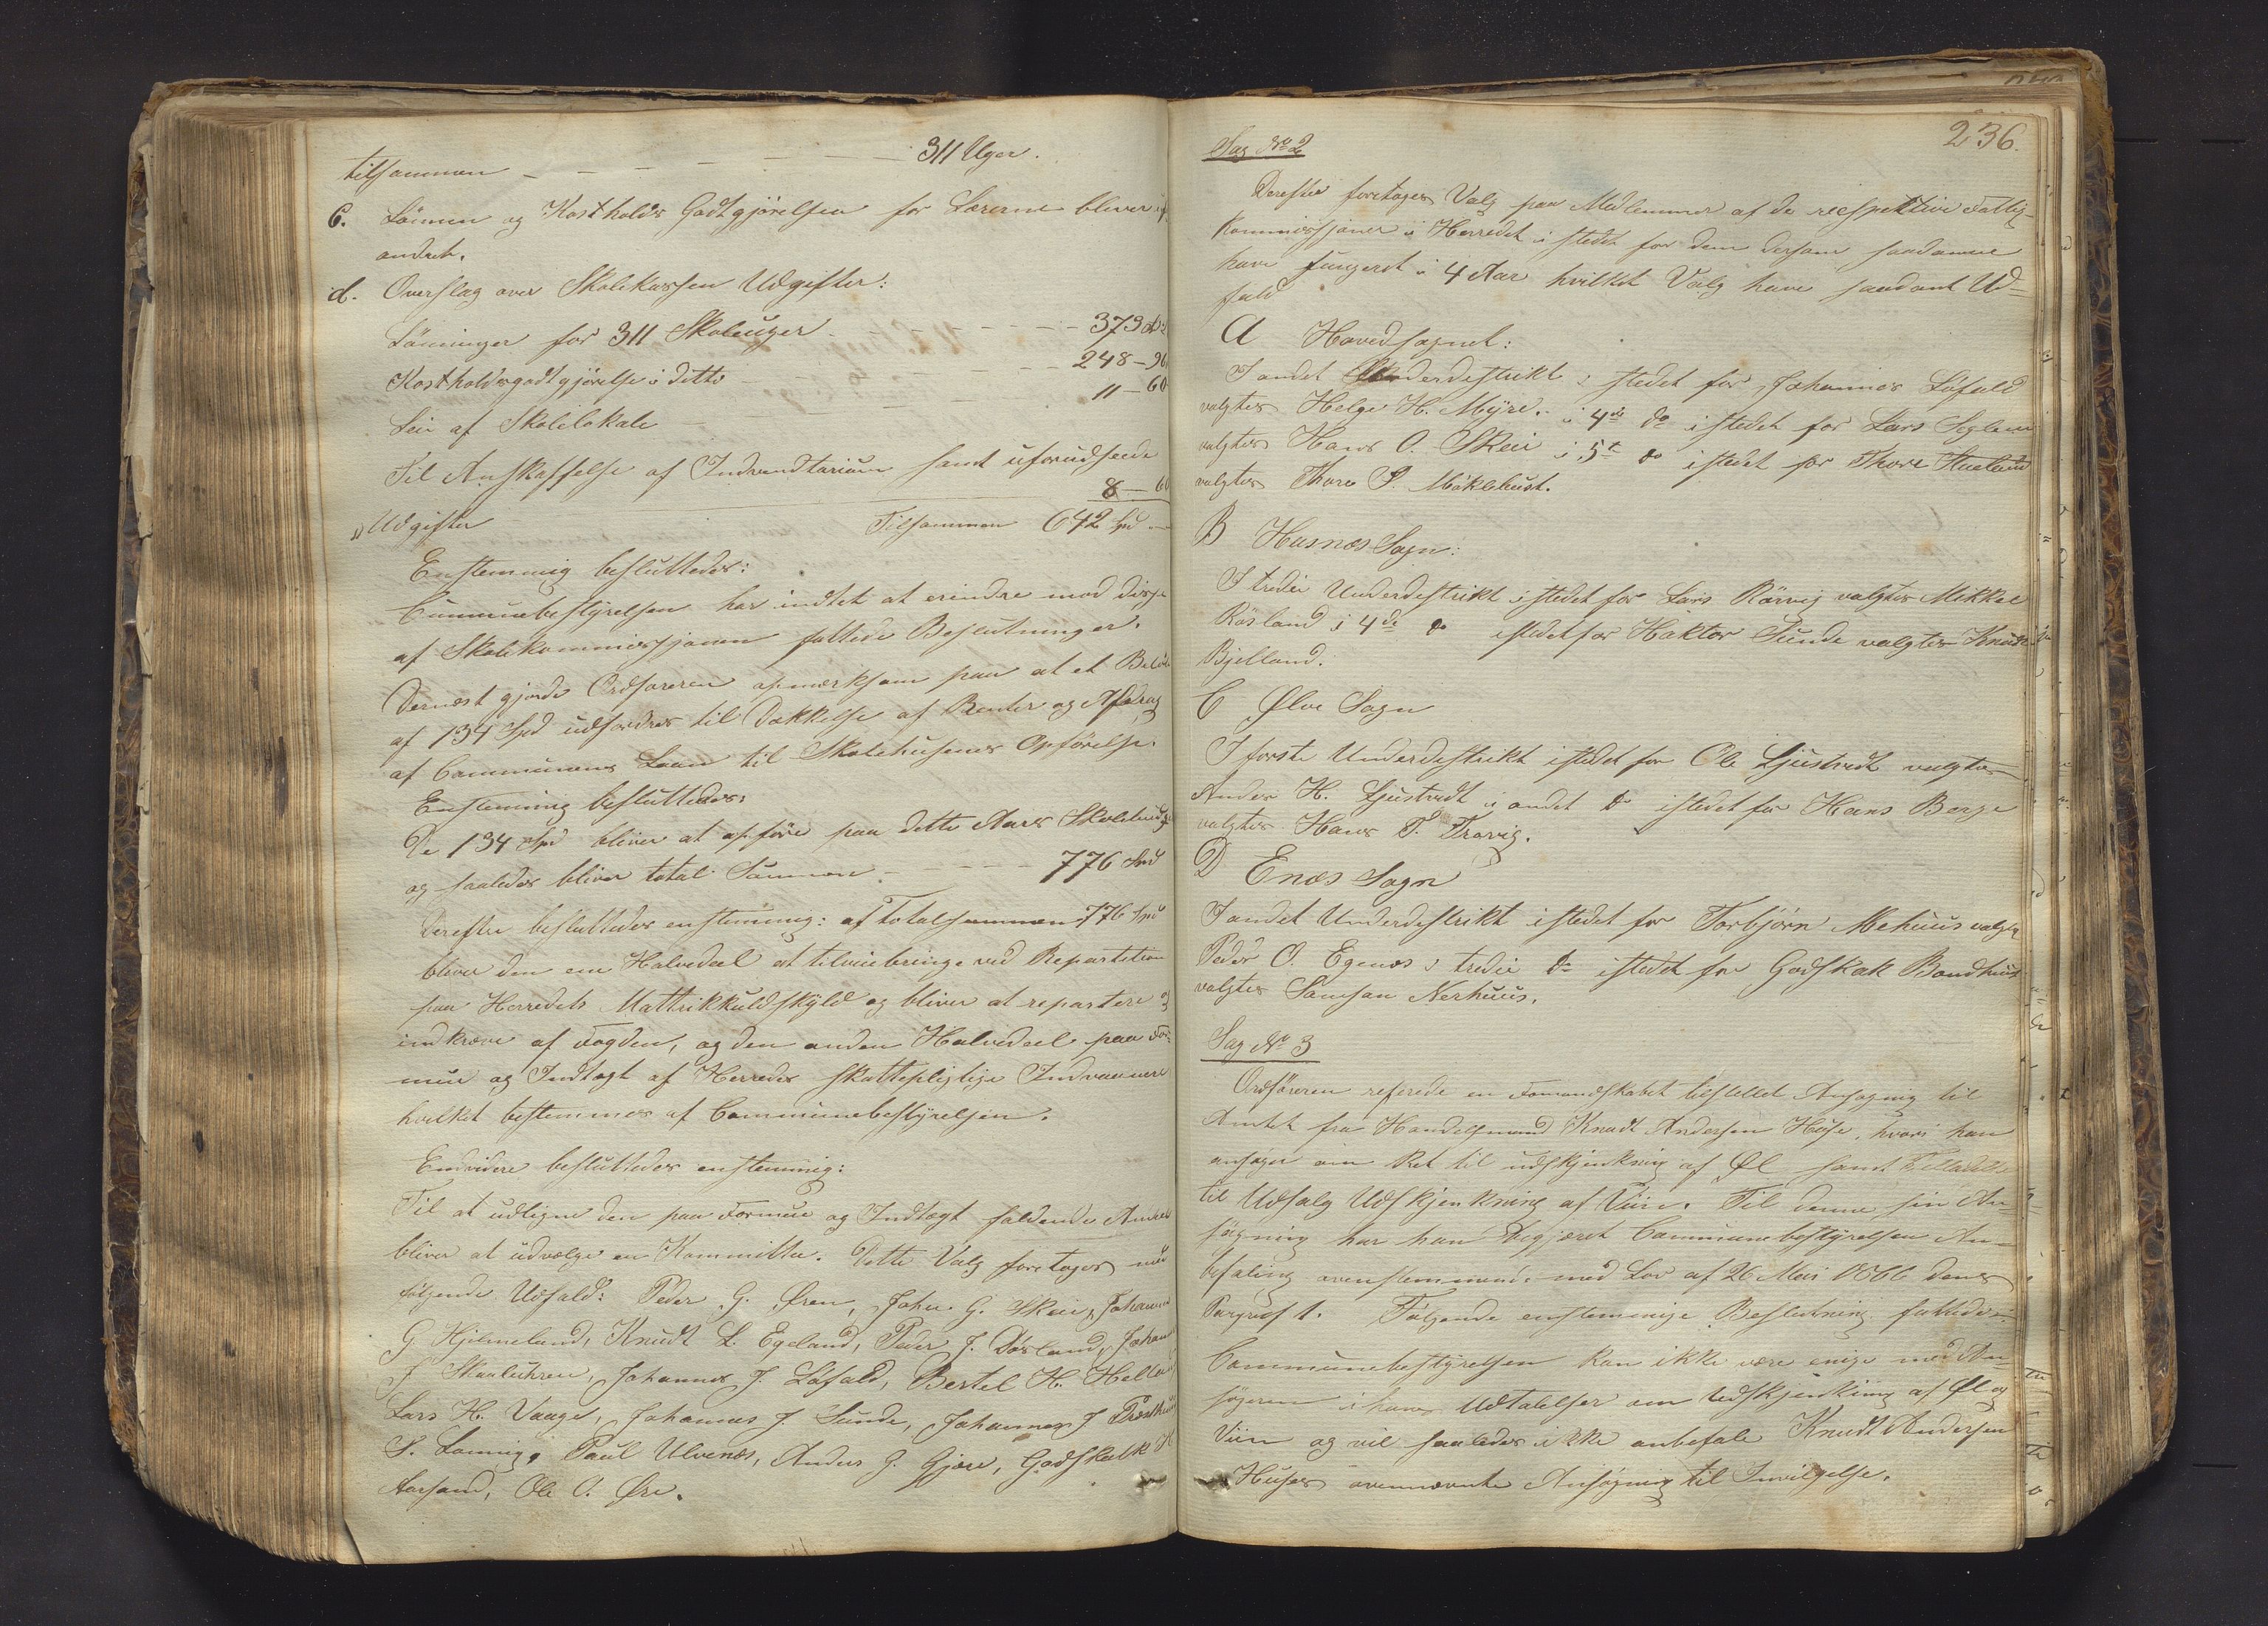 tilsammen — — — — — 311 Uger.
C. Lönnen og Kostholds Godtgjörelsen for Lærerne bliver
andret.
d. Overslag over Skolekassen Udgifter:
Lönninger for 311 Skoleuger - - - - - 373
Kostholdsgodtgjörelse i ditto - - - 248 - 96
Leie af Skolelokale - - - 11 - 60
Til Anskaffelse af Indvendtarium samt uforudseede
Udgifter 8 - 60
Tilsammen 642 Spd -
Enstemmig besluttedes:
Communebestyrelsen har indtet at erindre mod disse
af Skolekommissjonen fattede Beslutninger.
Dernæst gjorde Ordföreren opmærksom paa at et Belöb
af 134 Spd udfordres til Dækkelse af Renter og Afdrag
af Communens Laan til Skolehusenes Opförelse.
Enstemmig besluttedes:
De 134 Spd bliver at opföre paa dette Aars
og saaledes bliver total Summen - - - 776 Spd
Derefter besluttedes enstemmig: af Totalsummen 776 Spd
bliver den ene Halvedeel at tilveiebringe ved Repartition
paa Herredets Mattrikkulskyld og bliver at repartere og
indkræve af Fogden, og den anden Halvedeel paa For-
mue og Indtægt af Herredes skattepligtige Indvaanere
hvilket bestemmes af Communebestyrelsen.
Endvidere besluttedes enstemmig:
Til at udligne den paa Formue og Indtægt faldende Andel
bliver at udvælge en Kommitte. Dette Valg foretoges med
følgende Udfald: Peder G. Øren, John G. Skeie, Johannes
G Hjelmeland, Knudt L. Egeland, Peder J. Døsland, Johan
J Skaaluhren, Johannes J. Löfald, Bertel H. Helland
Lars H. Vaage, Johannes J Sunde, Johannes J Præsthuus
S. Lanning, Paul Ulvenæs, Anders G. Gjære, Godskalk H
Aarsand, Ole O. Øre.
236.
Sag No 2
Derefter foretoges Valg paa Medlemmer af de respektive Fattig-
Kommissjoner i Herredet i stedet for dem dersom saadanne
have fungeret i 4 Aar hvilket Valg have saadant Ud-
fald
A Hovedsognet:
I andet Underdestrikt i stedet for Johannes Löfald
valgtes Helge H. Myre. i 4de do i stedet for Lars Seglem
valgtes Hans O. Skeie i 5te do istedet for Thore Stueland
valgtes Thore S. Möklebust.
B Husnæs Sogn:
I tredie Underdestrikt i stedet for Lars Rörvig valgtes Mikkel
Rösland i 4de do istedet for Haktor Sunde valgtes Knudt
Bjelland.
C Ølve Sogn
I förste Underdestrikt istedet for Ole Ljustvedt valgtes
Anders H. Ljustvedt i andet do istedet for Hans Berge
valgtes Hans T. Trovig.
D Enæs Sogn
I andet Underdestrikt istedet for Torbjörn Mehuus valgtes
Peder O. Egenæs i tredie do istedet for Godskalk Bondhuus
valgtes Samson Nerhuus.
Sag No 3
Ordföreren referede en Formandskabet tilstillet Ansögning til
Amtet fra Handelsmand Knudt Andersen Huse, hvori han
ansøger om Ret til udskjenkning af Øl samt Tilladelse
til Udsalg Udskjenkning af Viin. Til denne sin An-
søgning har han begjæret Communebestyrelsen An-
befaling overenstemmende med Lov af 26 Mai 1866 dens
Pargraf 1. Følgende enstemmige Beslutning fattedes:
Communebestyrelsen kan ikke være enige med An-
søgeren i hans Udtalelser om Udskjenkning af Øl og
Viin og vil saaledes ikke anbefale Knudt Andersen
Huses ovennævnte Ansögning til Invilgelse.